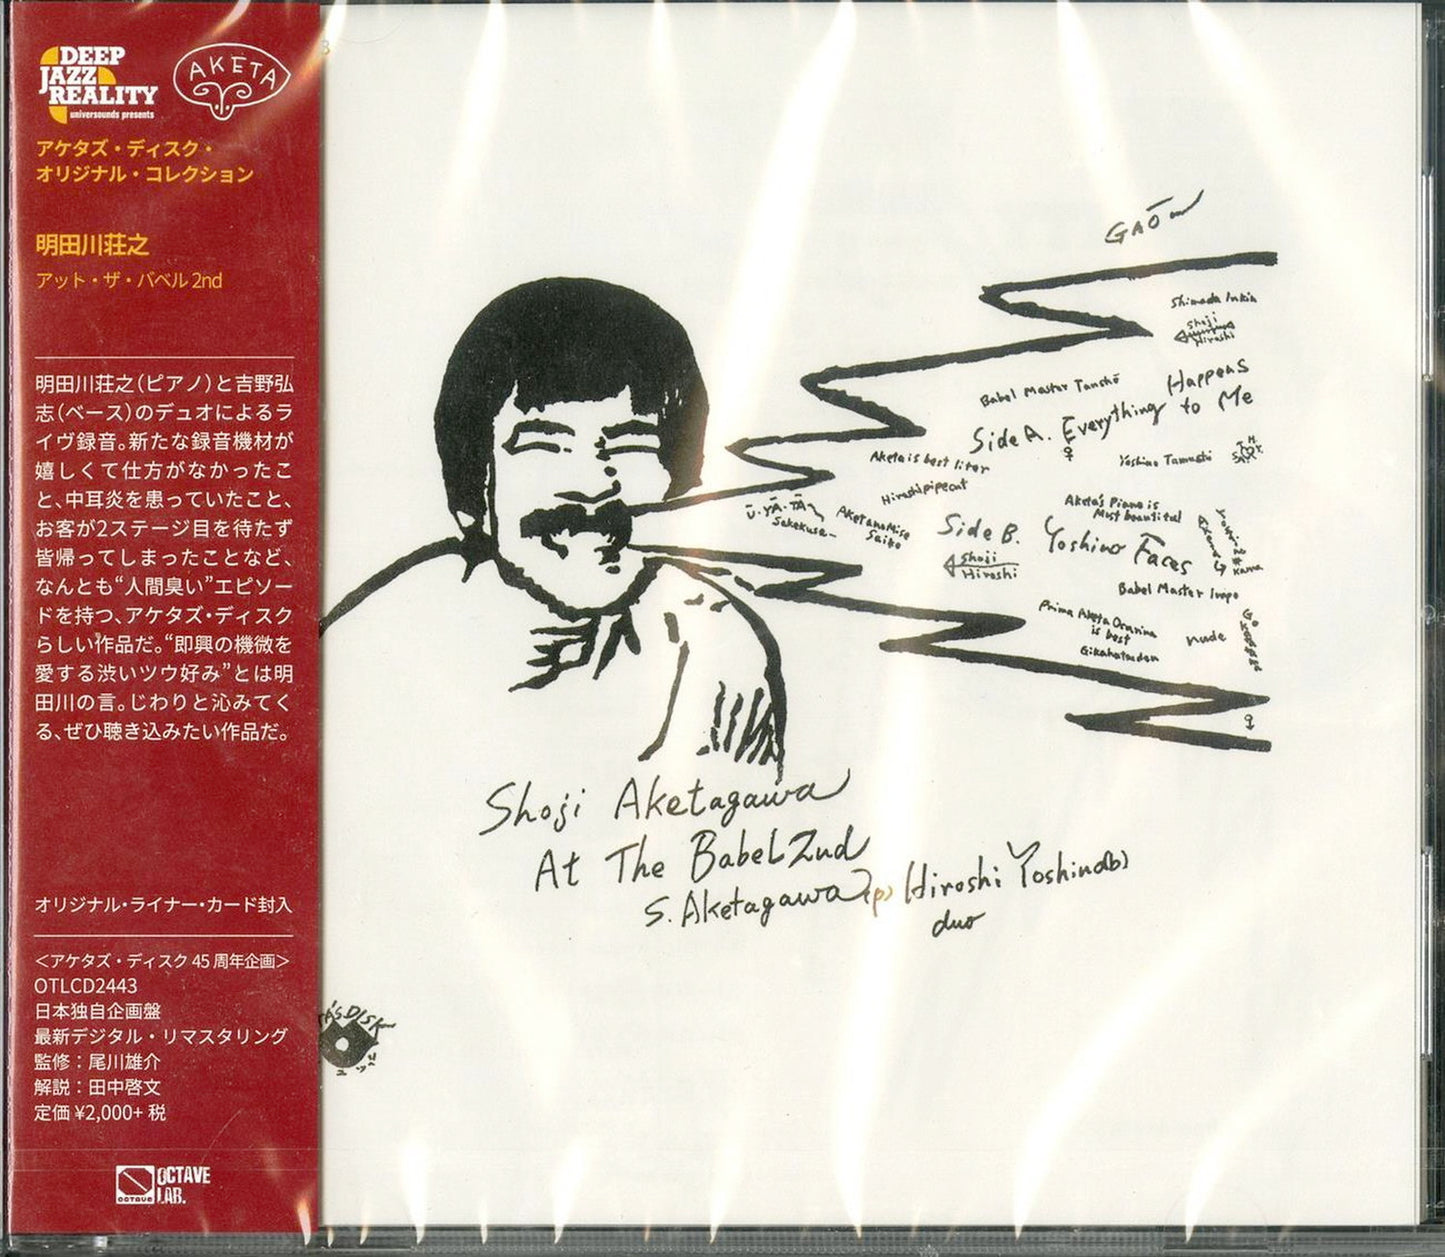 DEEP
JAZZ
REALITY
universounds presents
AKETA
アケタズ・ディスク・
オリジナル・コレクション
明田川荘之
アット・ザ・バベル 2nd
明田川荘之(ピアノ)と吉野弘
志(ベース)のデュオによるラ
イヴ録音。新たな録音機材が
嬉しくて仕方がなかったこ
と、中耳炎を患っていたこと、
お客が2ステージ目を待たず
皆帰ってしまったことなど、
なんとも“人間臭い”エピソー
ドを持つ、アケタズ・ディスク
らしい作品だ。“即興の機微を
愛する渋いツウ好み”とは明
田川の言。じわりと沁みてく
る、ぜひ聴き込みたい作品だ。
オリジナル・ライナー・カード封入
＜アケタズ・ディスク 45 周年企画＞
OTLCD2443
日本独自企画盤
最新デジタル・リマスタリング
監修：尾川雄介
解説：田中啓文
定価 ¥2,000+ 税
OCTAVE
OCTAVE
LAB.
GAŌ
Shimada
Shoji
Hiroshi
Babel Master Tanshō
Happens
Side A. Everything to Me
Aketa is best liter
Yoshino Tamashi
Hiroshi pipecut
Ū·YĀ·TĀ
Sakekusa
Aketa no Mise
Saiko
Aketa's Piano is
Most beautiful
Side B. Yoshino Faces
Shoji
Hiroshi
Babel Master
Prima Aketa Ocarina
is best
Gikahatsuden
nude
Shoji Aketagawa
At The Babel 2nd
S. Aketagawa (p) Hiroshi Yoshino (b)
duo
'S DISK